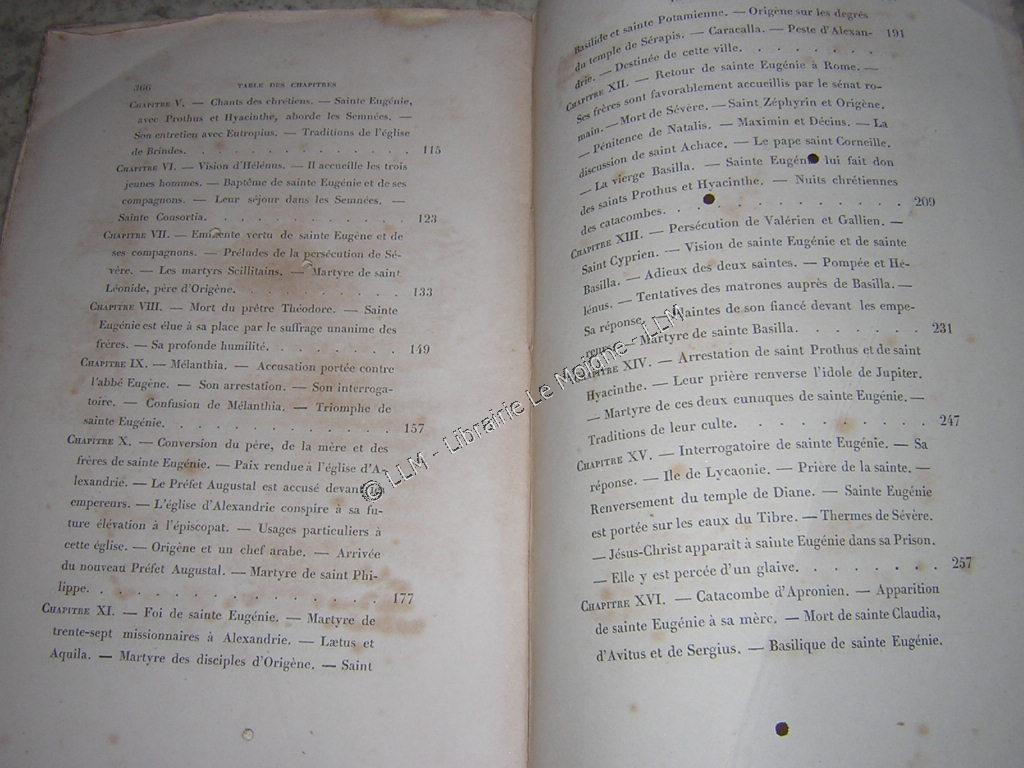 366 TABLE DES CHAPITRES
CHAPITRE V. — Chants des chrétiens. — Sainte Eugénie,
avec Prothus et Hyacinthe, aborde les Semnées. —
Son entretien avec Eutropius. — Traditions de l'église
de Brindes. . . . . . . . . . . . . . 115
CHAPITRE VI. — Vision d'Hélénus. — Il accueille les trois
jeunes hommes. — Baptême de sainte Eugénie et de ses
compagnons. — Leur séjour dans les Semnées. —
Sainte Consortia. . . . . . . . . . . . 123
CHAPITRE VII. — Eminente vertu de sainte Eugène et de
ses compagnons. — Préludes de la persécution de Sé-
vère. — Les martyrs Scillitains. — Martyre de saint
Léonide, père d'Origène. . . . . . . . . . 133
CHAPITRE VIII. — Mort du prêtre Théodore. — Sainte
Eugénie est élue à sa place par le suffrage unanime des
frères. — Sa profonde humilité. . . . . . . . 149
CHAPITRE IX. — Mélanthia. — Accusation portée contre
l'abbé Eugène. — Son arrestation. — Son interroga-
toire. — Confusion de Mélanthia. — Triomphe de
sainte Eugénie. . . . . . . . . . . . . 157
CHAPITRE X. — Conversion du père, de la mère et des
frères de sainte Eugénie. — Paix rendue à l'église d'A-
lexandrie. — Le Préfet Augustal est accusé devant les
empereurs. — L'église d'Alexandrie conspire à sa fu-
ture élévation à l'épiscopat. — Usages particuliers à
cette église. — Origène et un chef arabe. — Arrivée
du nouveau Préfet Augustal. — Martyre de saint Phi-
lippe. . . . . . . . . . . . . . . . 177
CHAPITRE XI. — Foi de sainte Eugénie. — Martyre de
trente-sept missionnaires à Alexandrie. — Lætus et
Aquila. — Martyre des disciples d'Origène. — Saint
Basilide et sainte Potamienne. — Origène sur les degrés
du temple de Sérapis. — Caracalla. — Peste d'Alexan-
drie. — Destinée de cette ville. . . . . . . . 191
CHAPITRE XII. — Retour de sainte Eugénie à Rome. —
Ses frères sont favorablement accueillis par le sénat ro-
main. — Mort de Sévère. — Saint Zéphyrin et Origène.
— Pénitence de Natalis. — Maximin et Décius. — La
discussion de saint Achace. — Le pape saint Corneille.
— La vierge Basilla. — Sainte Eugénie lui fait don
des saints Prothus et Hyacinthe. — Nuits chrétiennes
des catacombes. . . . . . . . . . . . . 209
CHAPITRE XIII. — Persécution de Valérien et Gallien. —
Saint Cyprien. — Vision de sainte Eugénie et de sainte
Basilla. — Adieux des deux saintes. — Pompée et Hé-
lénus. — Tentatives des matrones auprès de Basilla. —
Sa réponse. — Plaintes de son fiancé devant les empe-
reurs. — Martyre de sainte Basilla. . . . . . . 231
CHAPITRE XIV. — Arrestation de saint Prothus et de saint
Hyacinthe. — Leur prière renverse l'idole de Jupiter.
— Martyre de ces deux eunuques de sainte Eugénie. —
Traditions de leur culte. . . . . . . . . . 247
CHAPITRE XV. — Interrogatoire de sainte Eugénie. — Sa
réponse. — Ile de Lycaonie. — Prière de la sainte. —
Renversement du temple de Diane. — Sainte Eugénie
est portée sur les eaux du Tibre. — Thermes de Sévère.
— Jésus-Christ apparaît à sainte Eugénie dans sa Prison.
— Elle y est percée d'un glaive. . . . . . . . 257
CHAPITRE XVI. — Catacombe d'Apronien. — Apparition
de sainte Eugénie à sa mère. — Mort de sainte Claudia,
d'Avitus et de Sergius. — Basilique de sainte Eugénie.
© LLM - Librairie Le Moione - LLM